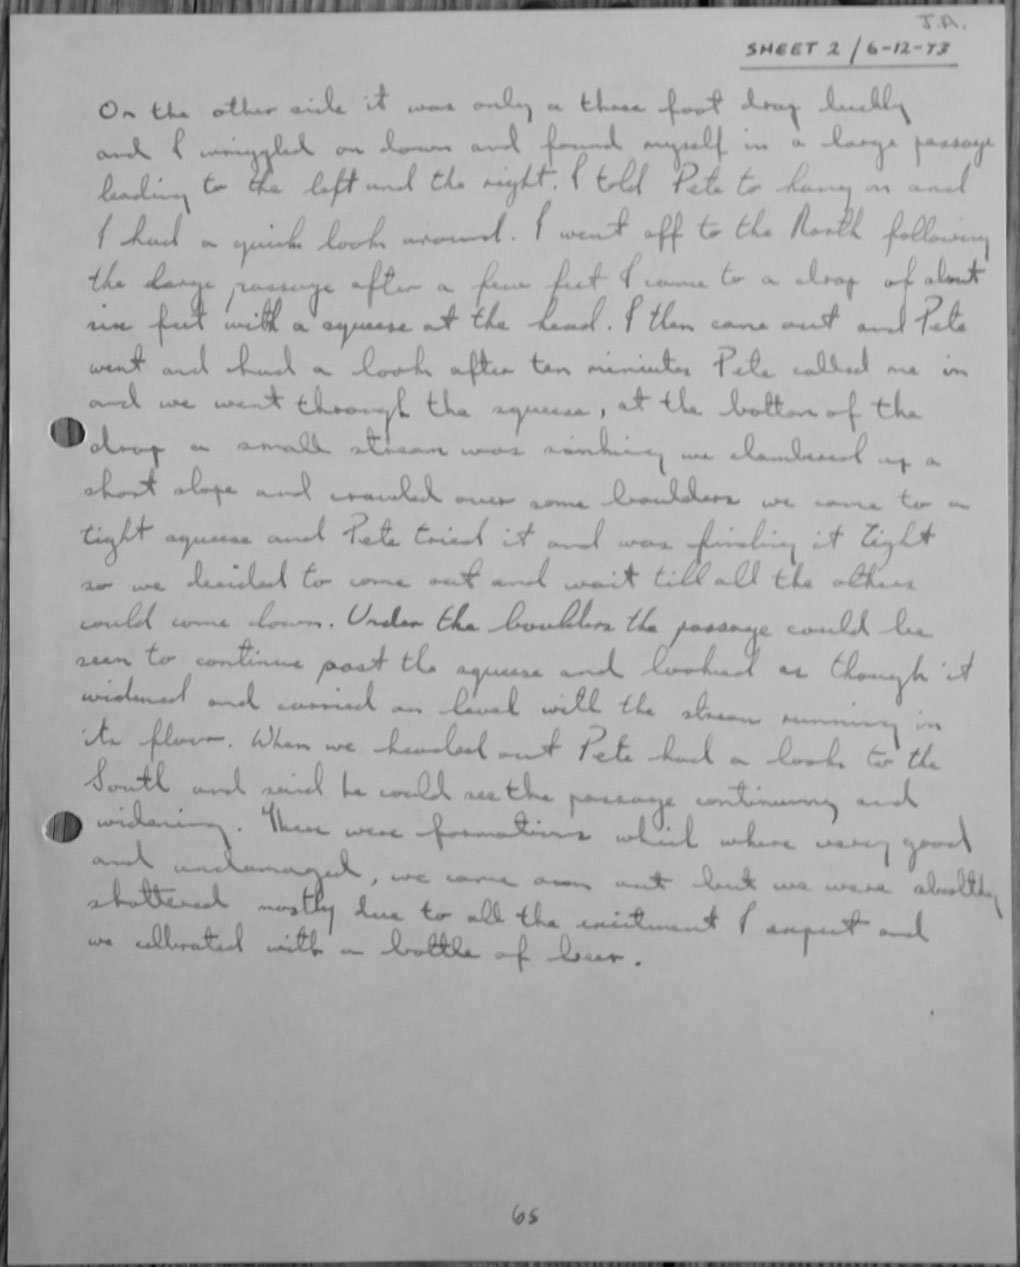 J.A.
SHEET 2 / 6-12-73
On the other side it was only a three foot drop luckly
and I wriggled on down and found myself in a large passage
leading to the left and the right. I told Pete to hang on and
I had a quick look around. I went off to the North following
the large passage after a few feet I came to a drop of about
six feet with a squeese at the head. I then came out and Pete
went and had a look after ten miniutes Pete called me in
and we went through the squeese, at the bottom of the
drop a small stream was sinking we clambered up a
short slope and crawled over some boulders we came to a
tight squeese and Pete tried it and was finding it tight
so we decided to come out and wait till all the others
could come down. Under the boulders the passage could be
seen to continue past the squeese and looked as though it
widened and carried on level with the stream running in
its floor. When we headed out Pete had a look to the
South and said he could see the passage continuing and
widening. There were formations which where very good
and undamaged, we came out but we were
shattered mostly due to all the excitment I expect and
we celbrated with a bottle of beer.
65